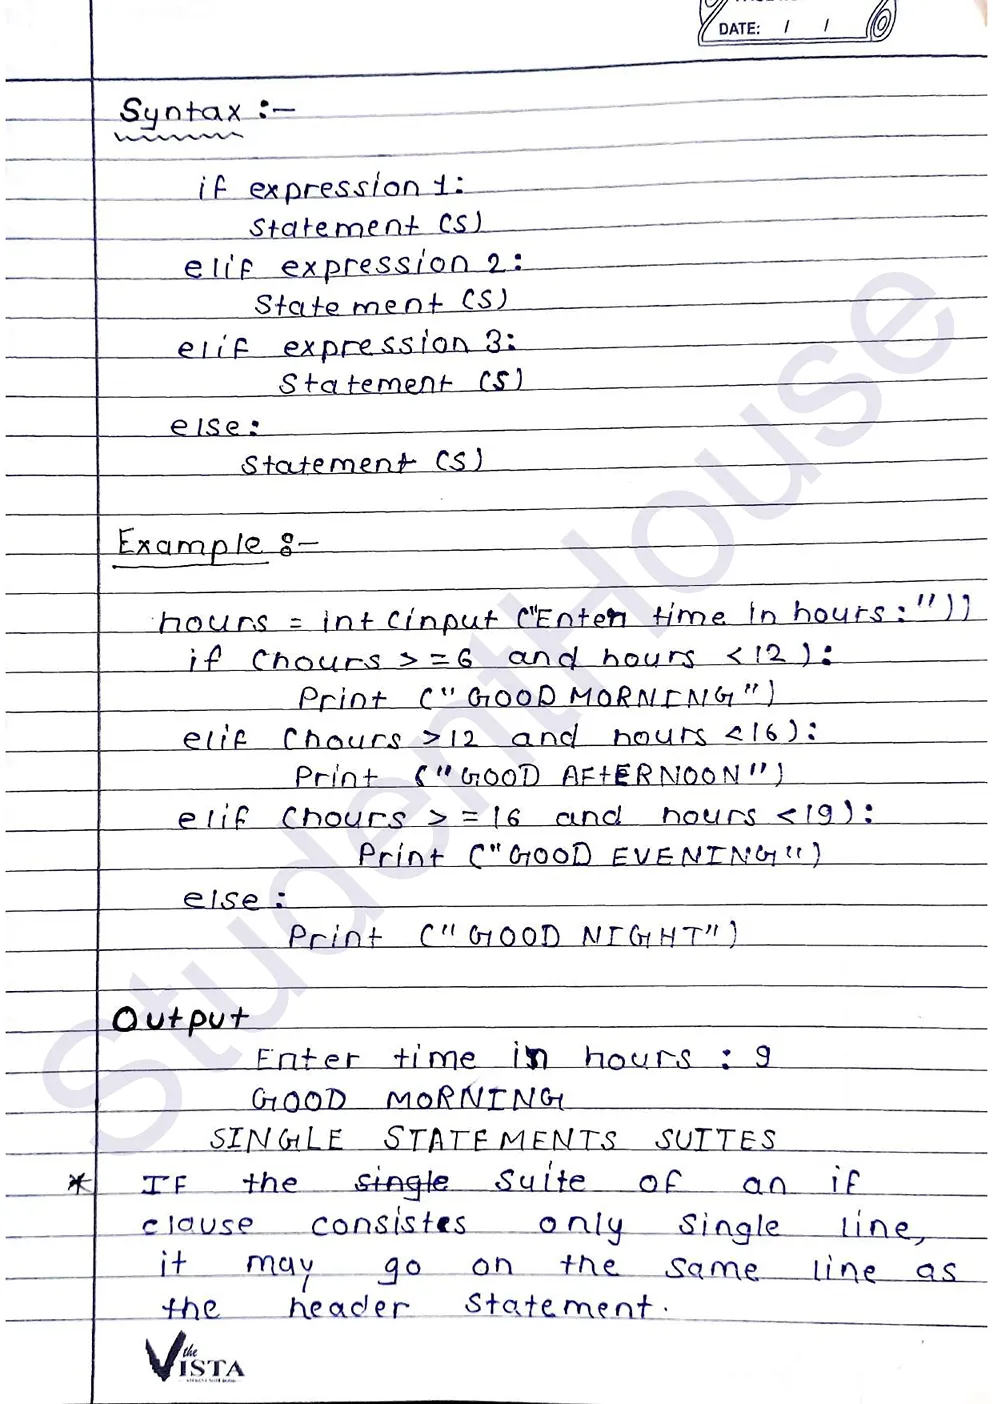 DATE: / /
Syntax :-
if expression 1:
Statement (s)
elif expression 2:
Statement (s)
elif expression 3:
Statement (s)
else:
Statement (s)
Example :-
hours = int (input ("Enter time in hours:"))
if (hours >=6 and hours <12):
Print ("GOOD MORNING")
elif (hours >12 and hours <16):
Print ("GOOD AFtERNOON")
elif (hours >=16 and hours <19):
Print ("GOOD EVENING")
else:
Print ("GOOD NIGHT")
Output
Enter time in hours : 9
GOOD MORNING
SINGLE STATEMENTS SUITES
* IF the single suite of an if
clause consistes only single line,
it may go on the same line as
the header statement.
the VISTA
StudentHouse